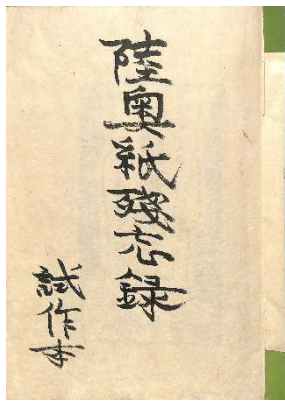 陸奥紙殘忘録
試作本